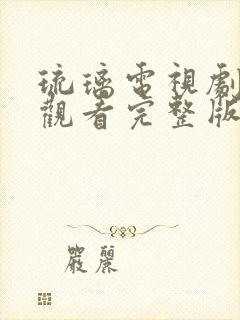 琉璃電視劇
觀看完整版
嚴麗